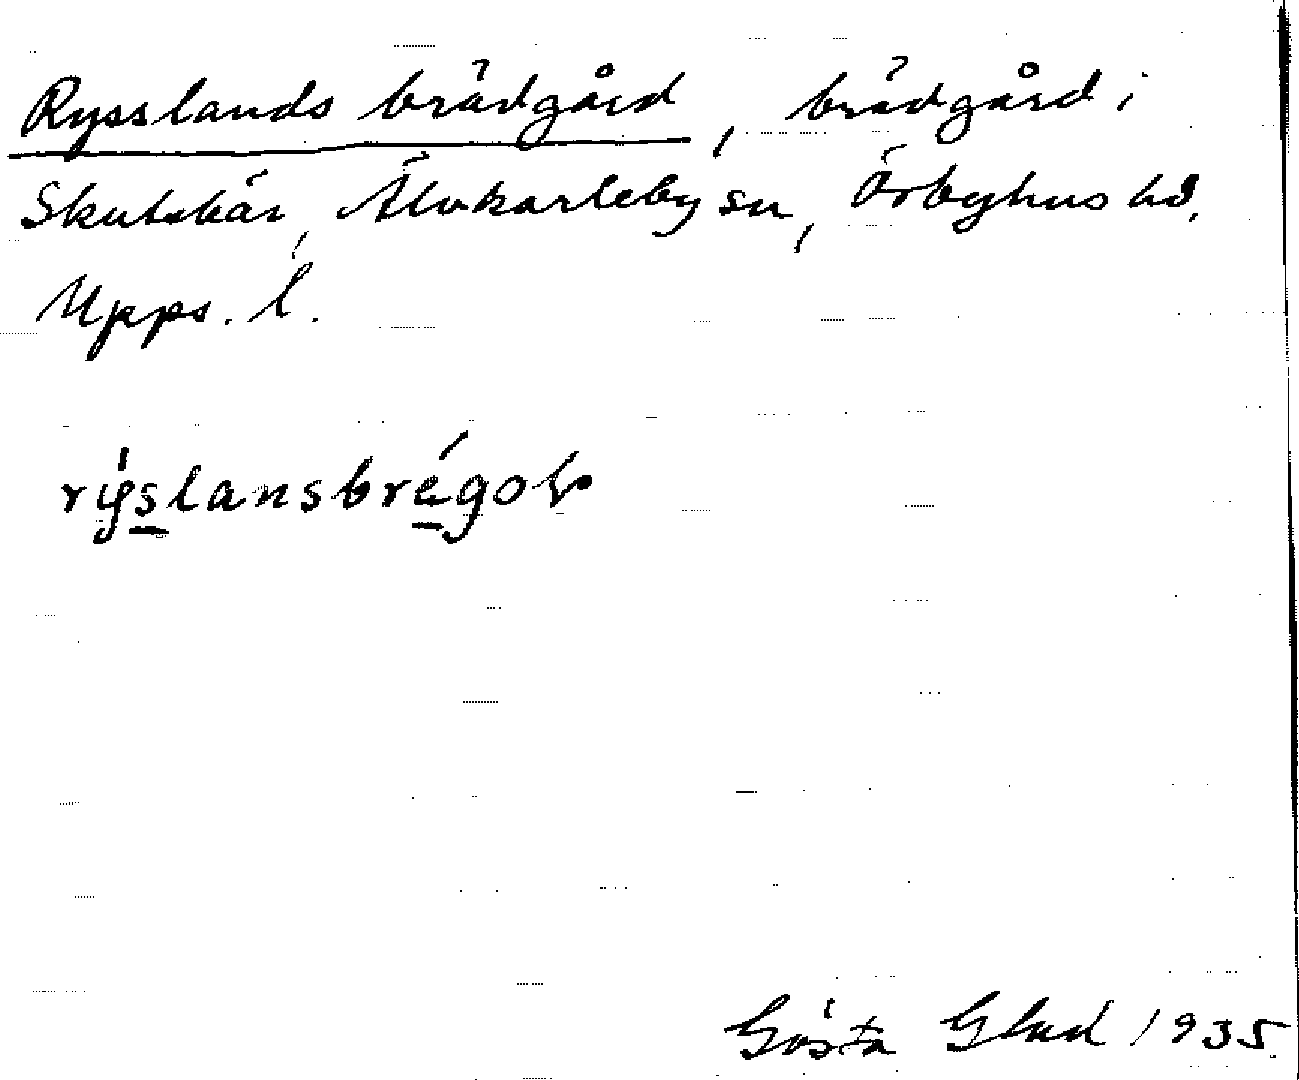 Rysslands brädgård, brädgård i
Skutskär, Älvkarleby sn, Örbyhus hd,
Upps. l.
Gösta Glad 1935